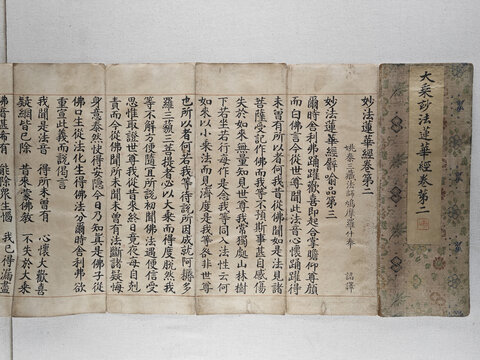 大乘妙法蓮華經卷第二
妙法蓮華經卷第二
姚秦三藏法師鳩摩羅什奉 詔譯
妙法蓮華經譬喻品第三
爾時舍利弗踊躍歡喜即起合掌瞻仰尊顏
而白佛言今從世尊聞此法音心懷踊躍得
未曾有所以者何我昔從佛聞如是法見諸
菩薩受記作佛而我等不預斯事甚自感傷
失於如來無量知見世尊我常獨處山林樹
下若坐若行每作是念我等同入法性云何
如來以小乘法而見濟度是我等咎非世尊
也所以者何若我等待說所因成就阿耨多
羅三藐三菩提者必以大乘而得度脫然我
等不解方便隨宜所說初聞佛法遇便信受
思惟取證世尊我從昔來終日竟夜每自剋
責而今從佛聞所未聞未曾有法斷諸疑悔
身意泰然快得安隱今日乃知真是佛子從
佛口生從法化生得佛法分爾時舍利弗欲
重宣此義而說偈言
我聞是法音 得所未曾有 心懷大歡喜
疑網皆已除 昔來蒙佛教 不失於大乘
佛音甚希有 能除眾生惱 我已得漏盡